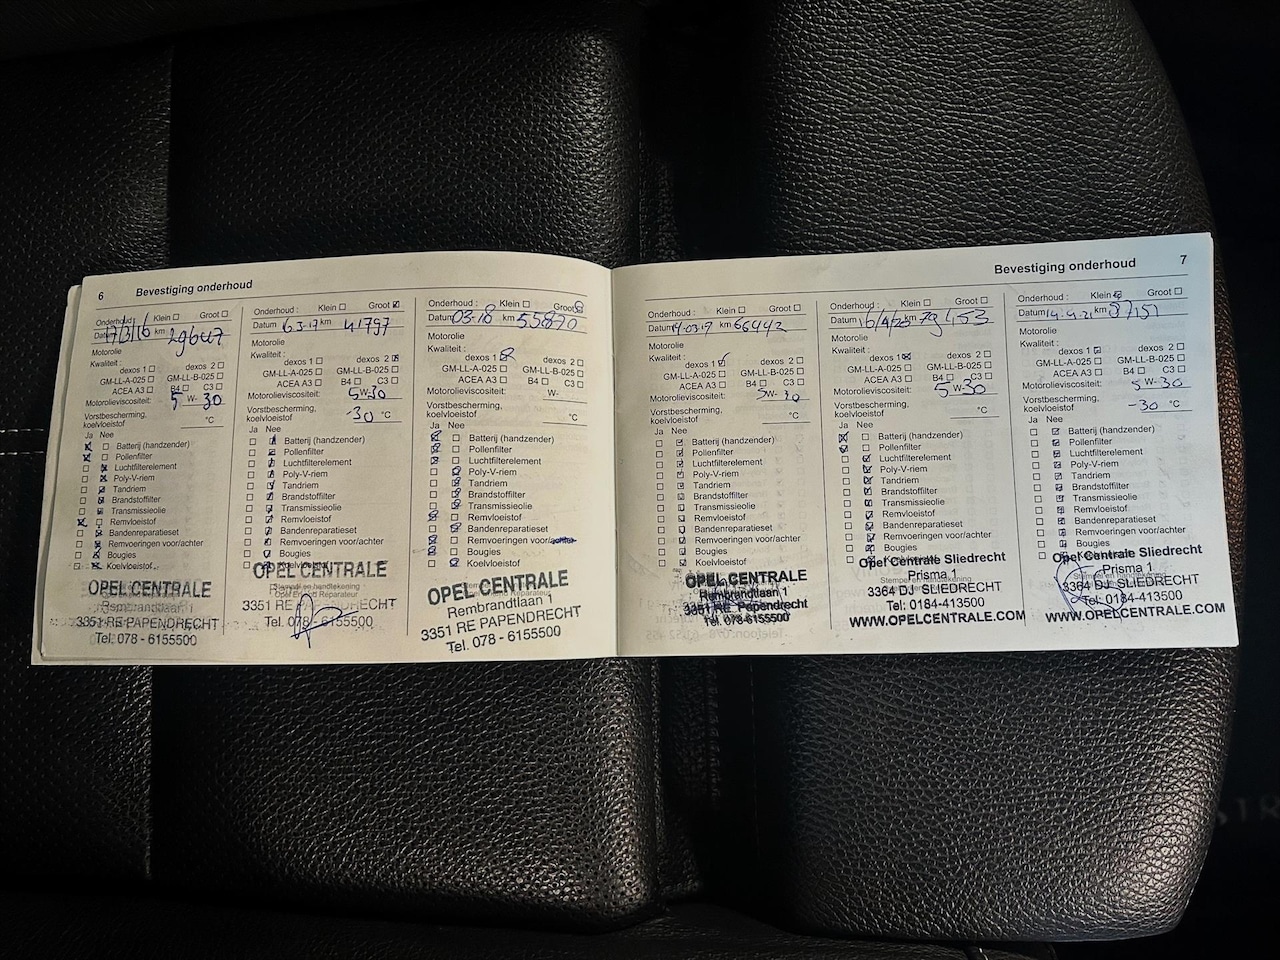 6 Bevestiging onderhoud
Onderhoud : Klein Groot
Datum 17/3/16 km 29607
Motorolie
Kwaliteit :
dexos 1 dexos 2
GM-LL-A-025 GM-LL-B-025
ACEA A3 B4 C3
Motorolieviscositeit: 5 W- 30
Vorstbescherming,
koelvloeistof °C
Ja Nee
Batterij (handzender)
Pollenfilter
Luchtfilterelement
Poly-V-riem
Tandriem
Brandstoffilter
Transmissieolie
Remvloeistof
Bandenreparatieset
Remvoeringen voor/achter
Bougies
Koelvloeistof
OPEL CENTRALE
Rembrandtlaan 1
3351 RE PAPENDRECHT
Tel. 078 - 6155500
Onderhoud : Klein Groot
Datum 6 3-17 km 41797
Motorolie
Kwaliteit :
dexos 1 dexos 2
GM-LL-A-025 GM-LL-B-025
ACEA A3 B4 C3
Motorolieviscositeit: 5W-30
Vorstbescherming,
koelvloeistof -30 °C
Ja Nee
Batterij (handzender)
Pollenfilter
Luchtfilterelement
Poly-V-riem
Tandriem
Brandstoffilter
Transmissieolie
Remvloeistof
Bandenreparatieset
Remvoeringen voor/achter
Bougies
Koelvloeistof
OPEL CENTRALE
3351 RE PAPENDRECHT
Tel. 078 - 6155500
Onderhoud : Klein Groot
Datum 03-18 km 55870
Motorolie
Kwaliteit :
dexos 1 dexos 2
GM-LL-A-025 GM-LL-B-025
ACEA A3 B4 C3
Motorolieviscositeit: W-
Vorstbescherming,
koelvloeistof °C
Ja Nee
Batterij (handzender)
Pollenfilter
Luchtfilterelement
Poly-V-riem
Tandriem
Brandstoffilter
Transmissieolie
Remvloeistof
Bandenreparatieset
Remvoeringen voor/achter
Bougies
Koelvloeistof
OPEL CENTRALE
Rembrandtlaan 1
3351 RE PAPENDRECHT
Tel. 078 - 6155500
Bevestiging onderhoud 7
Onderhoud : Klein Groot
Datum 14-03-19 km 66442
Motorolie
Kwaliteit :
dexos 1 dexos 2
GM-LL-A-025 GM-LL-B-025
ACEA A3 B4 C3
Motorolieviscositeit: 5W- 30
Vorstbescherming,
koelvloeistof °C
Ja Nee
Batterij (handzender)
Pollenfilter
Luchtfilterelement
Poly-V-riem
Tandriem
Brandstoffilter
Transmissieolie
Remvloeistof
Bandenreparatieset
Remvoeringen voor/achter
Bougies
Koelvloeistof
OPEL CENTRALE
Rembrandtlaan 1
3351 RE Papendrecht
Tel. 078-6155500
Onderhoud : Klein Groot
Datum 16/4/20 km 79453
Motorolie
Kwaliteit :
dexos 1 dexos 2
GM-LL-A-025 GM-LL-B-025
ACEA A3 B4 C3
Motorolieviscositeit: 5W-30
Vorstbescherming,
koelvloeistof °C
Ja Nee
Batterij (handzender)
Pollenfilter
Luchtfilterelement
Poly-V-riem
Tandriem
Brandstoffilter
Transmissieolie
Remvloeistof
Bandenreparatieset
Remvoeringen voor/achter
Bougies
Koelvloeistof
Opel Centrale Sliedrecht
Prisma 1
3364 DJ SLIEDRECHT
Tel: 0184-413500
WWW.OPELCENTRALE.COM
Onderhoud : Klein Groot
Datum 14-4-21 km 87151
Motorolie
Kwaliteit :
dexos 1 dexos 2
GM-LL-A-025 GM-LL-B-025
ACEA A3 B4 C3
Motorolieviscositeit: 5W-30
Vorstbescherming,
koelvloeistof -30 °C
Ja Nee
Batterij (handzender)
Pollenfilter
Luchtfilterelement
Poly-V-riem
Tandriem
Brandstoffilter
Transmissieolie
Remvloeistof
Bandenreparatieset
Remvoeringen voor/achter
Bougies
Koelvloeistof
Opel Centrale Sliedrecht
Prisma 1
3364 DJ SLIEDRECHT
Tel: 0184-413500
WWW.OPELCENTRALE.COM